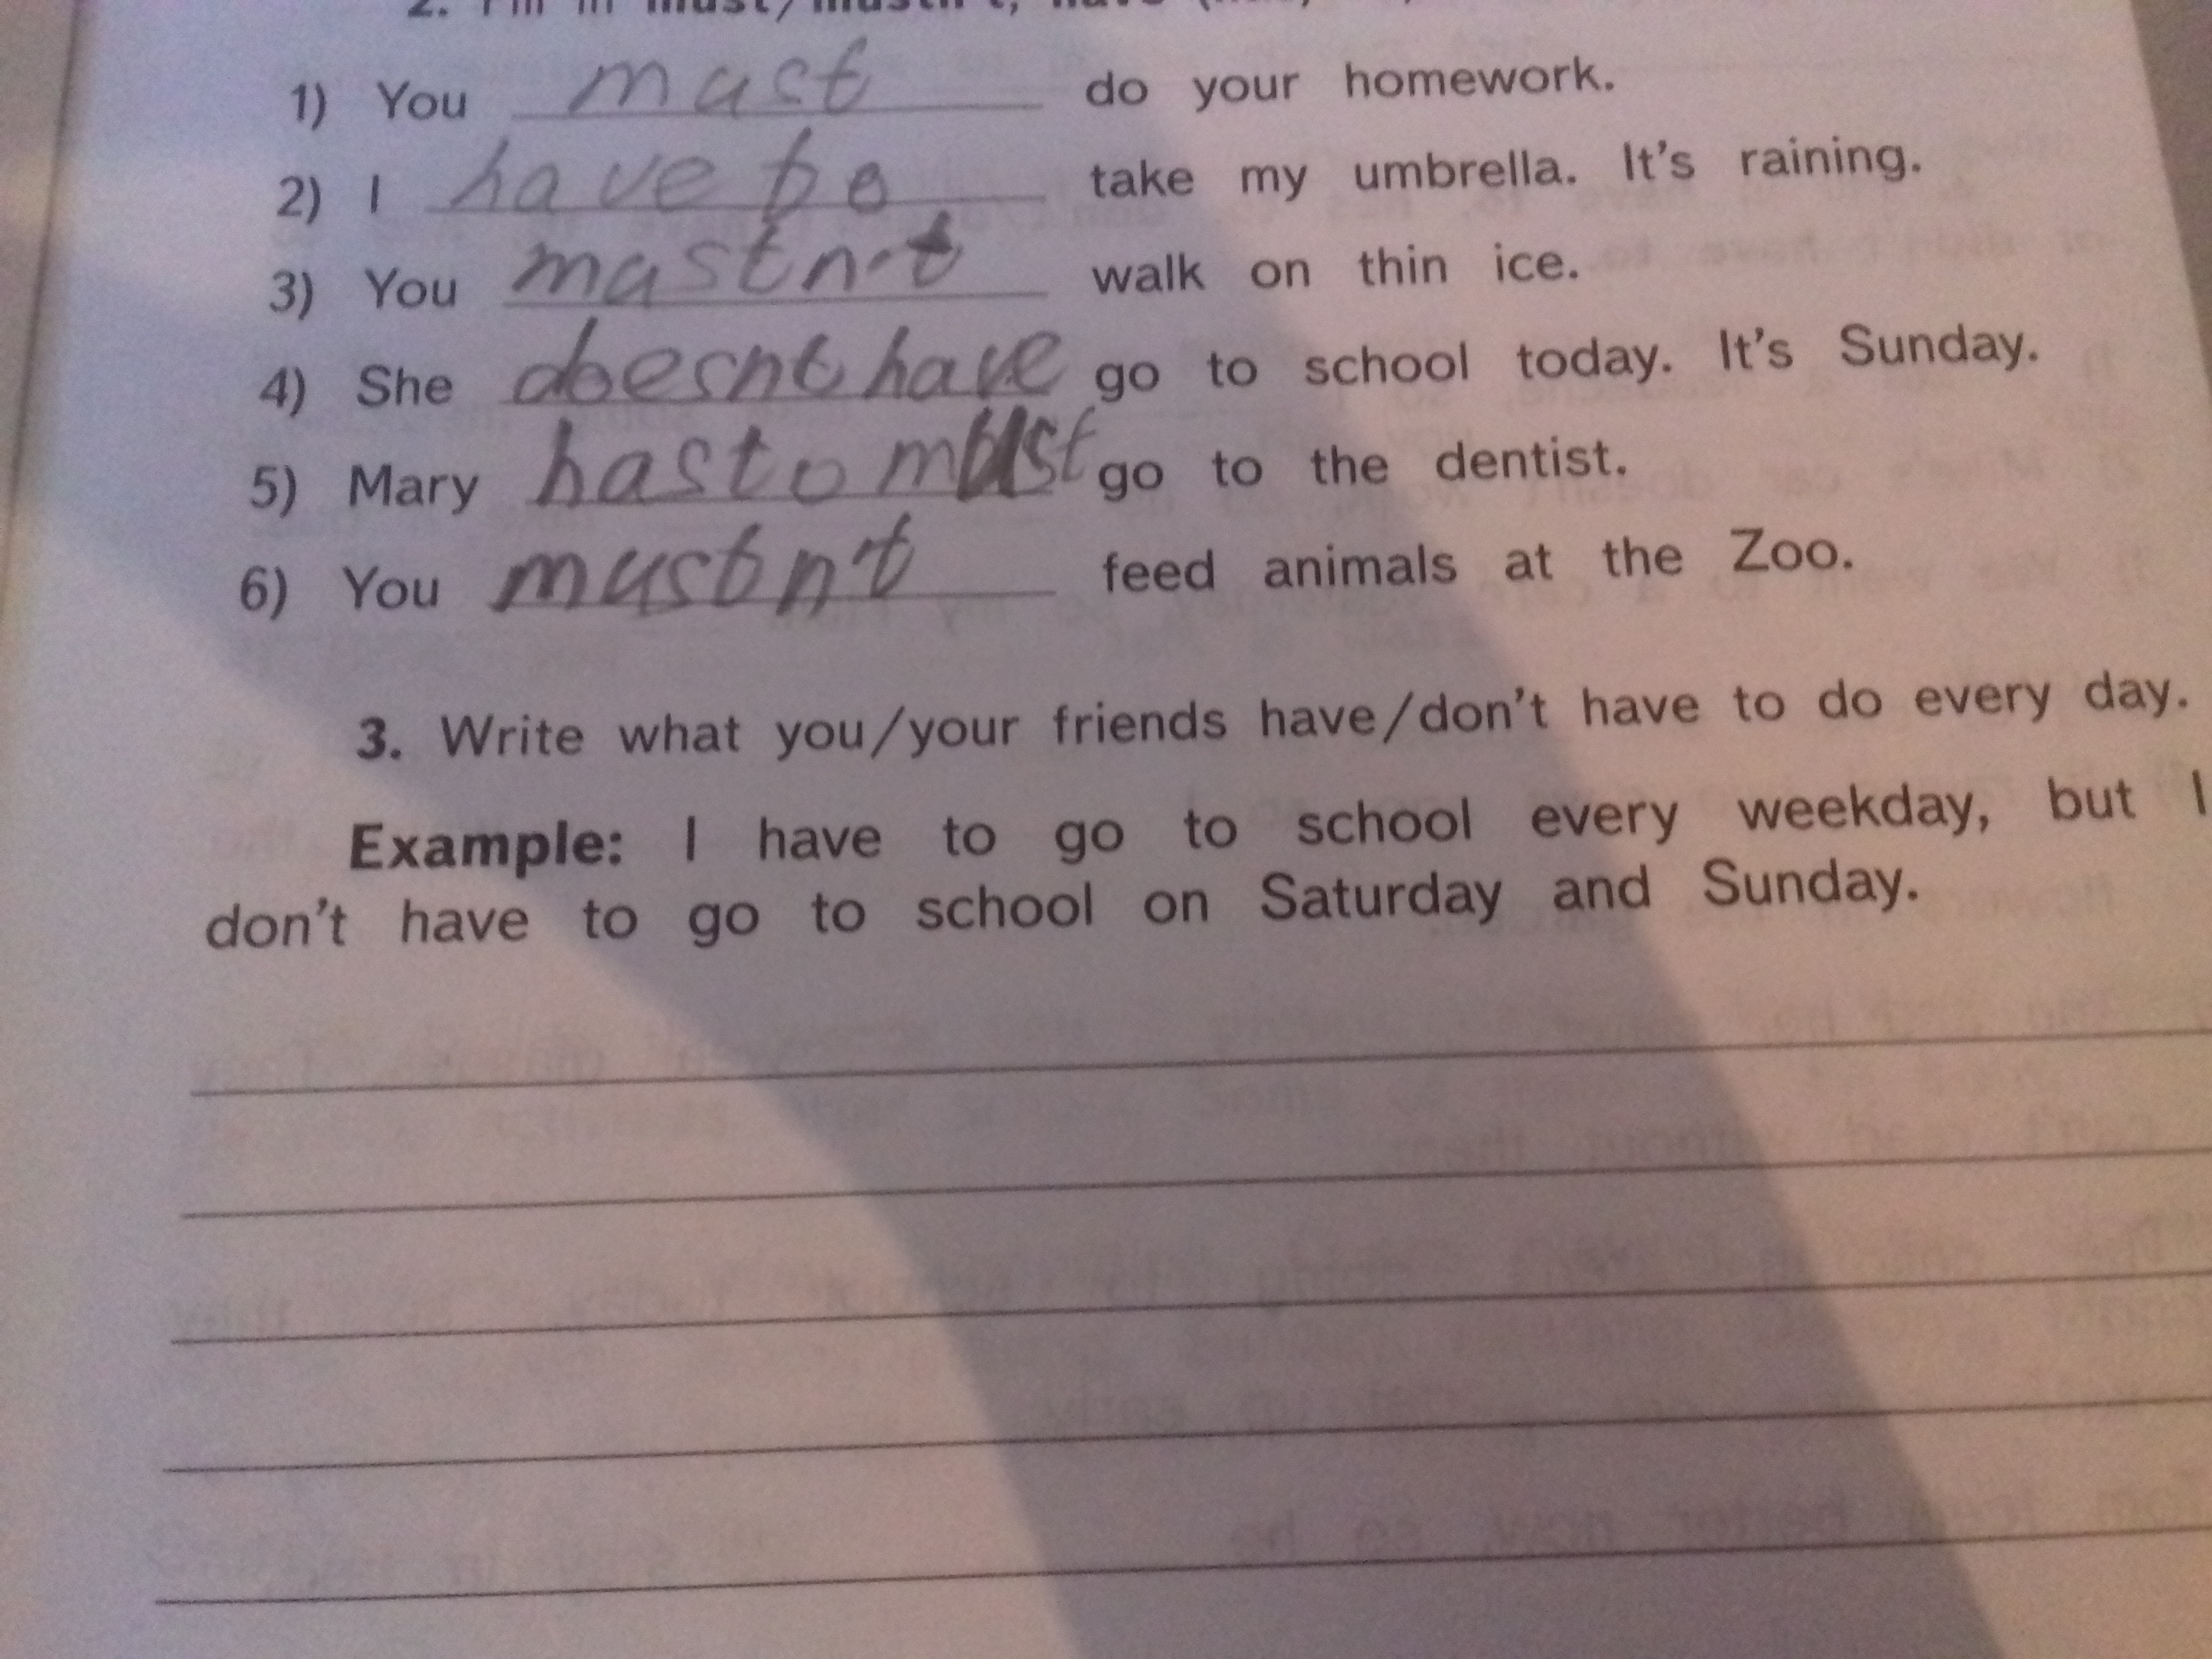 2. Fill in must/mustn't, have
1) You must do your homework.
2) I have to take my umbrella. It's raining.
3) You mastn't walk on thin ice.
4) She doesnt have go to school today. It's Sunday.
5) Mary has to must go to the dentist.
6) You mustn't feed animals at the Zoo.
3. Write what you/your friends have/don't have to do every day.
Example: I have to go to school every weekday, but I
don't have to go to school on Saturday and Sunday.